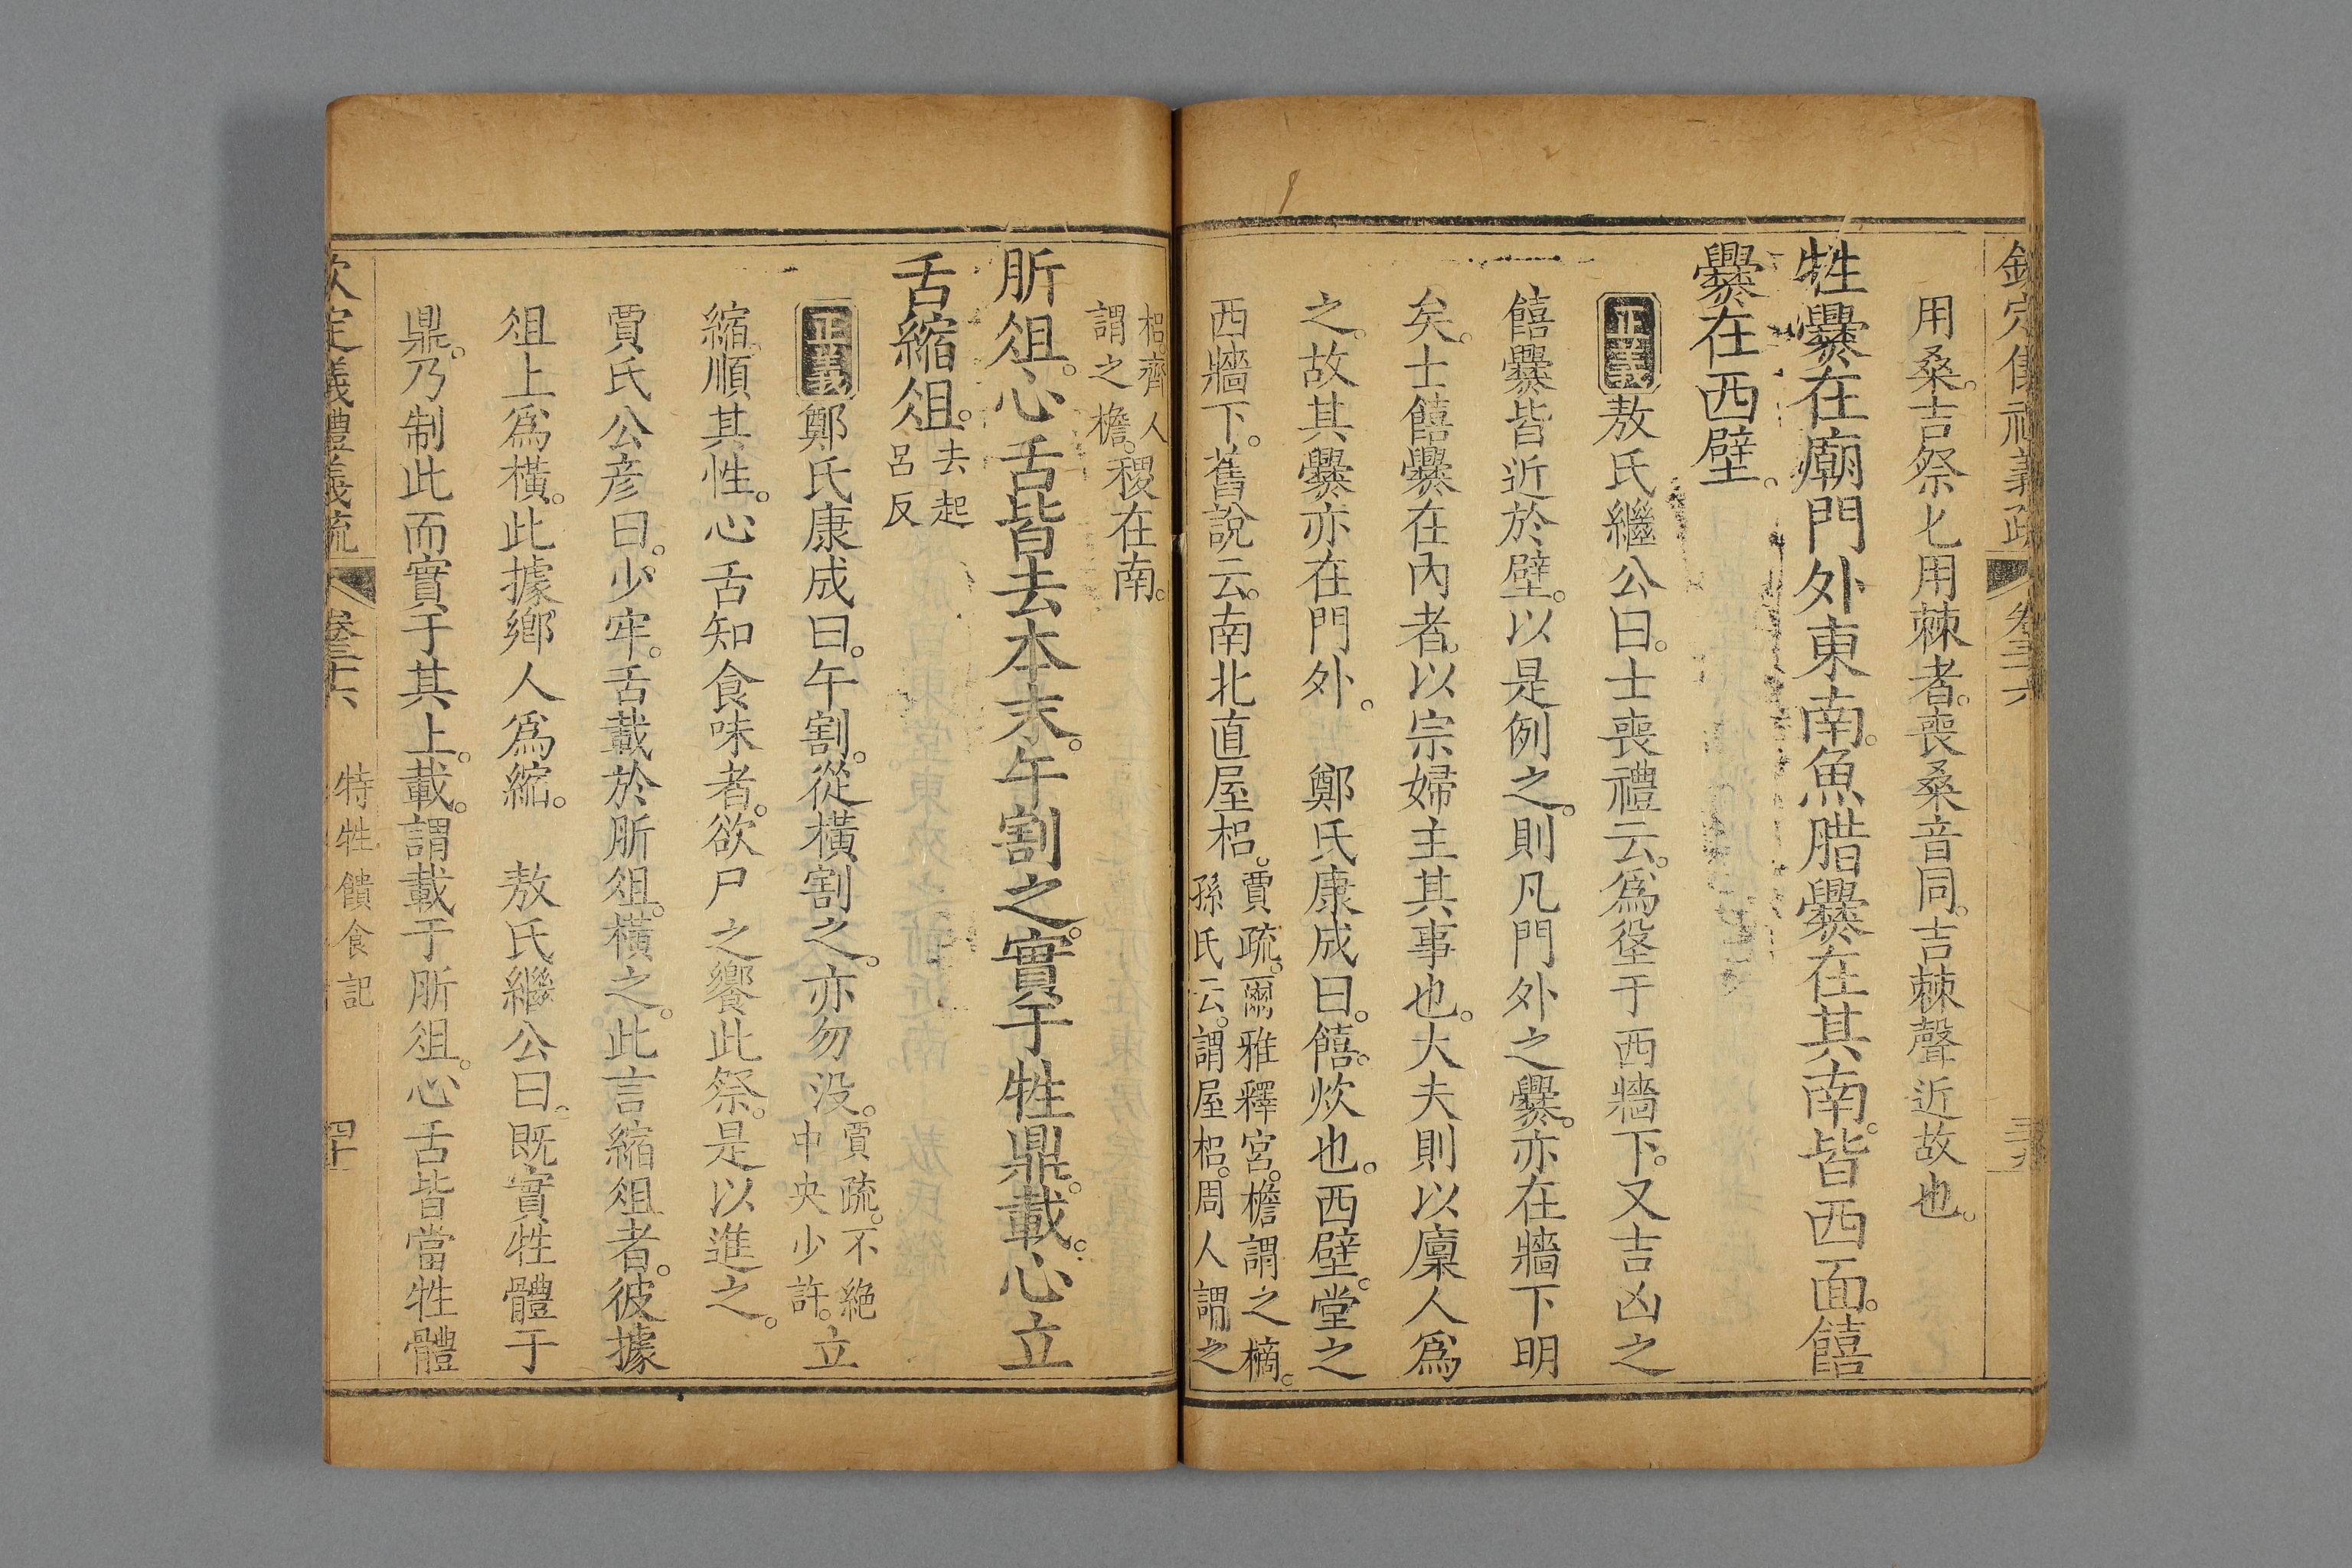 欽定儀禮義疏 卷三十六 三十九
用桑吉祭匕用棘者喪桑音同吉棘聲近故也
牲爨在廟門外東南魚腊爨在其南皆西面饎
爨在西壁
正義敖氏繼公曰士喪禮云為垼于西牆下又吉凶之
饎爨皆近於壁以是例之則凡門外之爨亦在牆下明
矣士饎爨在內者以宗婦主其事也大夫則以廩人為
之故其爨亦在門外 鄭氏康成曰饎炊也西壁堂之
西牆下舊說云南北直屋梠賈疏爾雅釋宮檐謂之樀
孫氏云謂屋梠周人謂之
梠齊人
謂之檐稷在南
肵俎心舌皆去本末午割之實于牲鼎載心立
舌縮俎去起
呂反
正義鄭氏康成曰午割從橫割之亦勿没賈疏不絶
中央少許立
縮順其性心舌知食味者欲尸之饗此祭是以進之
賈氏公彦曰少牢舌載於肵俎橫之此言縮俎者彼據
俎上為橫此據鄉人為縮 敖氏繼公曰既實牲體于
鼎乃制此而實于其上載謂載于肵俎心舌皆當牲體
欽定儀禮義疏 卷三十六 特牲饋食記 四十